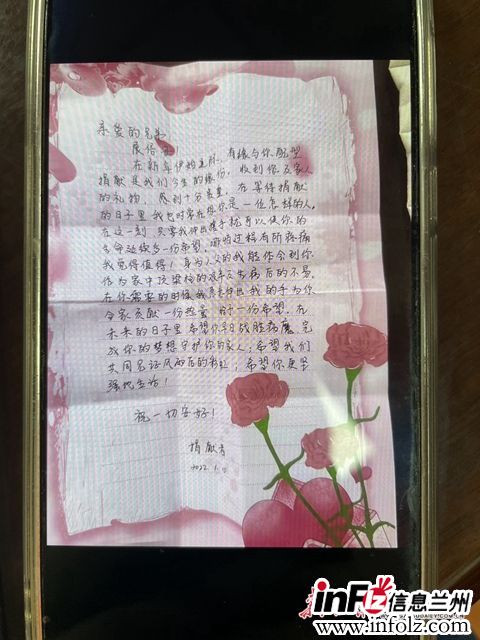 亲爱的兄弟：
展信
在新年伊始之际，有缘与你配型
捐献是我们今生的缘份，收到你及家人
的礼物，感到十分贵重，在等待捐献
的日子里我总时常在想你是一位怎样的人。
在这一刻，只需我伸出援手就可以使你的
生命延续多一份希望，哪怕过程有所疼痛
我觉得值得！身为人父的我能体会到你
作为家中顶梁柱的成年女生病后的不易，
在你需要的时候我愿意伸出我的手为你
全家贡献一份热量，给一份希望，在
未来的日子里希望你早日战胜病魔，完
成你的梦想守护你的家人；希望我们
共同见证风雨后的彩虹；希望你更坚
强地生活！
祝一切安好！
捐献者
2022.1.
infLz信息兰州
www.infolz.com